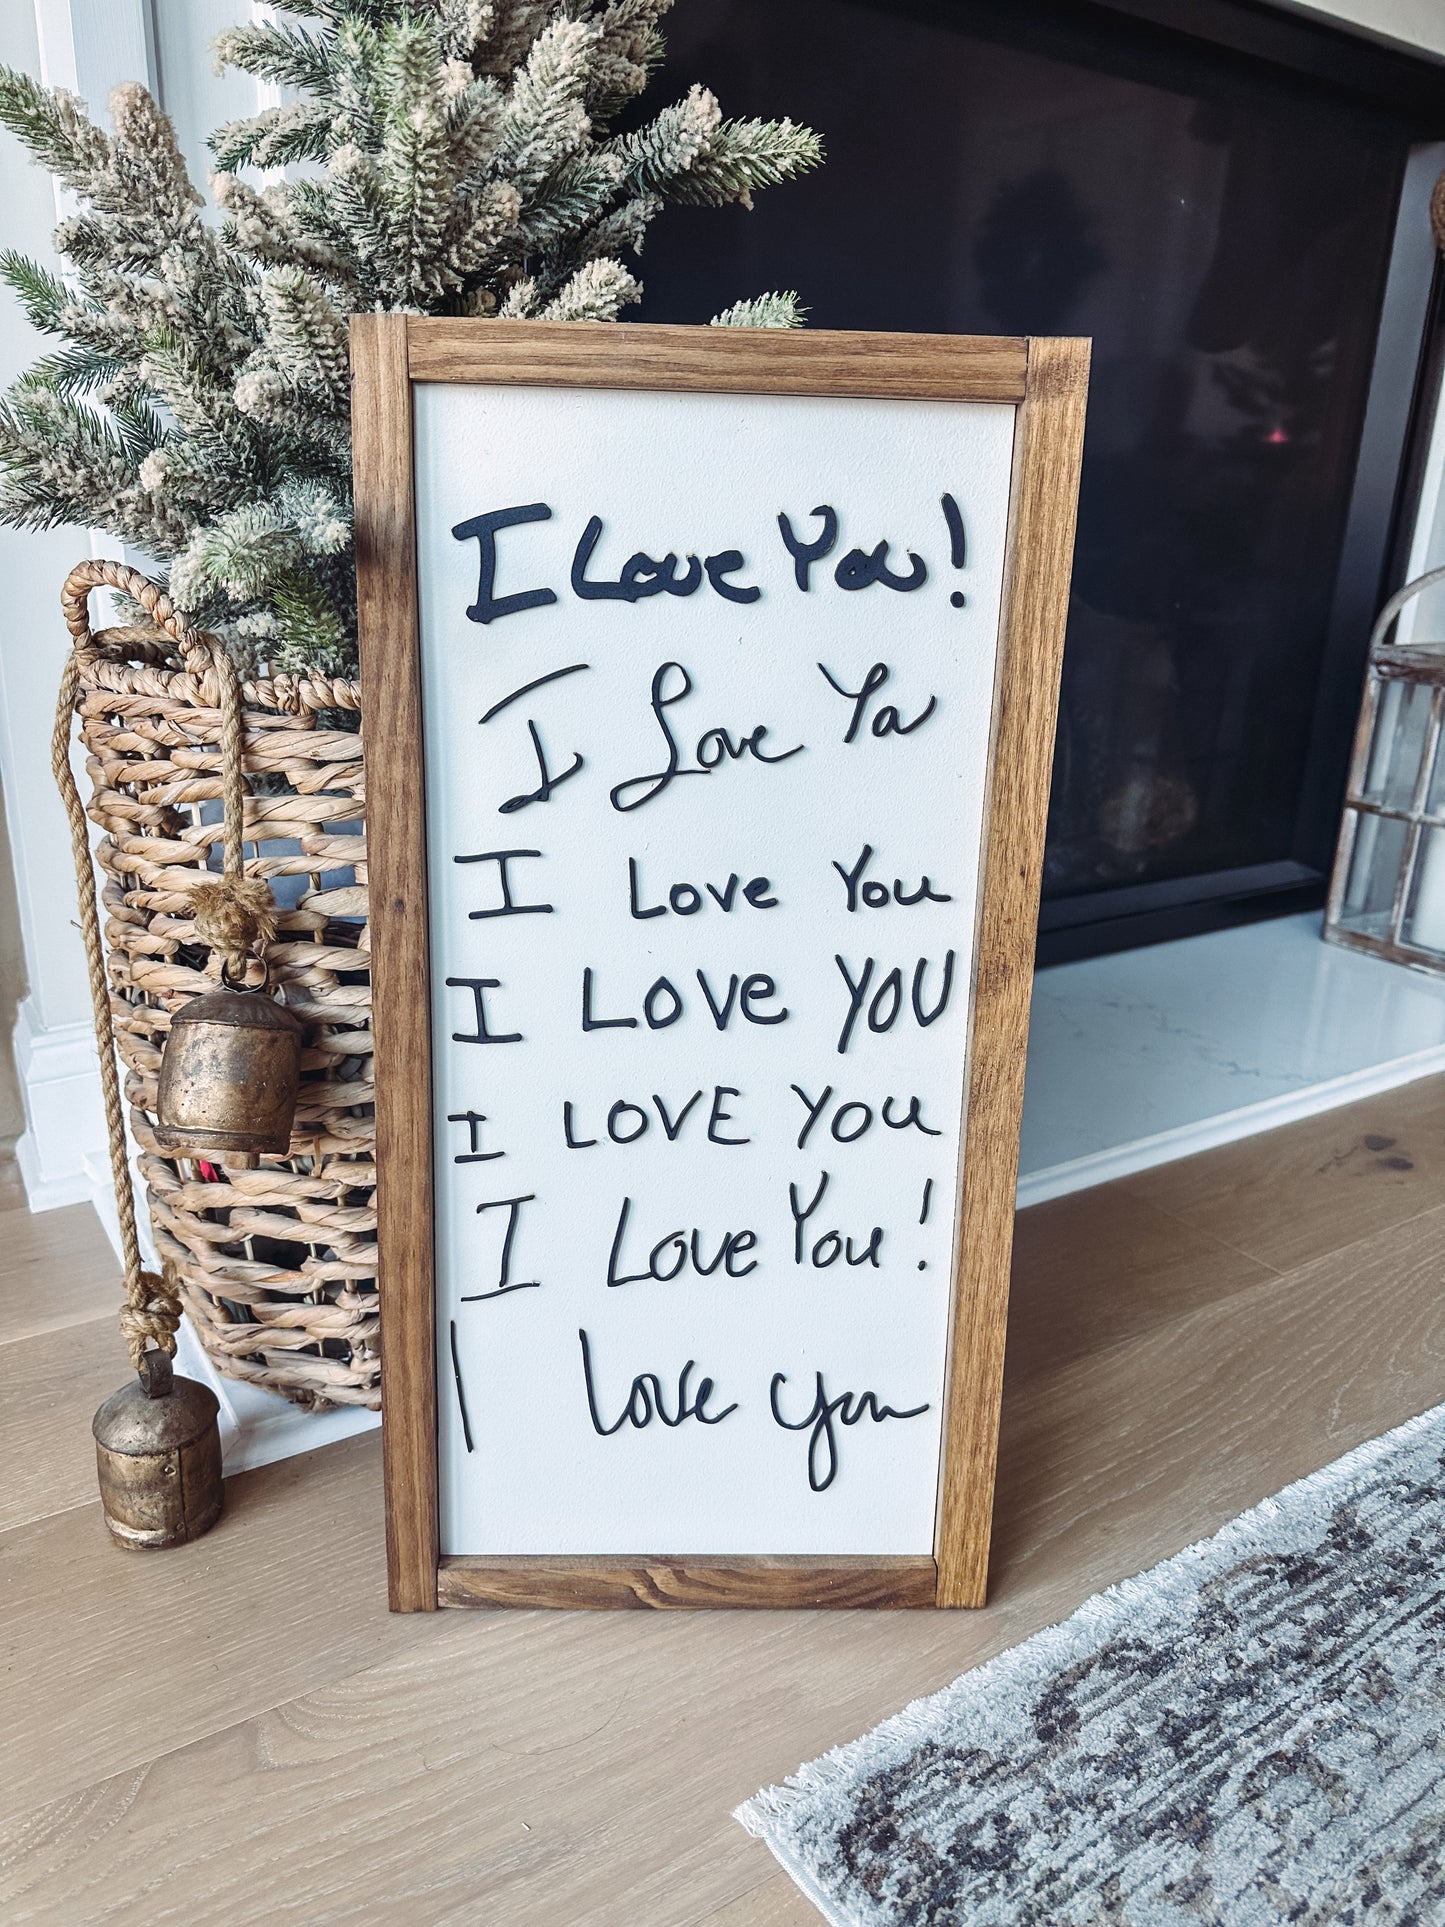 I Love You!
I Love Ya
I Love You
I LOVe YOU
I LOVE YOU
I Love You!
I love you